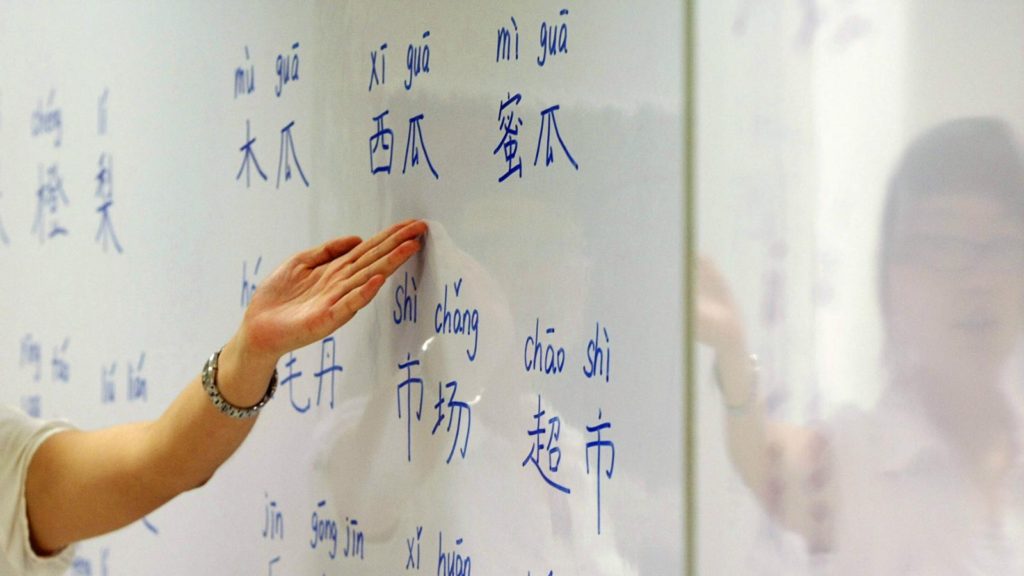 chéng lí mù guā xī guā mì guā
橙 梨 木瓜 西瓜 蜜瓜
shì chǎng chāo shì
毛丹 市场 超市
jīn gōng jīn xǐ huān